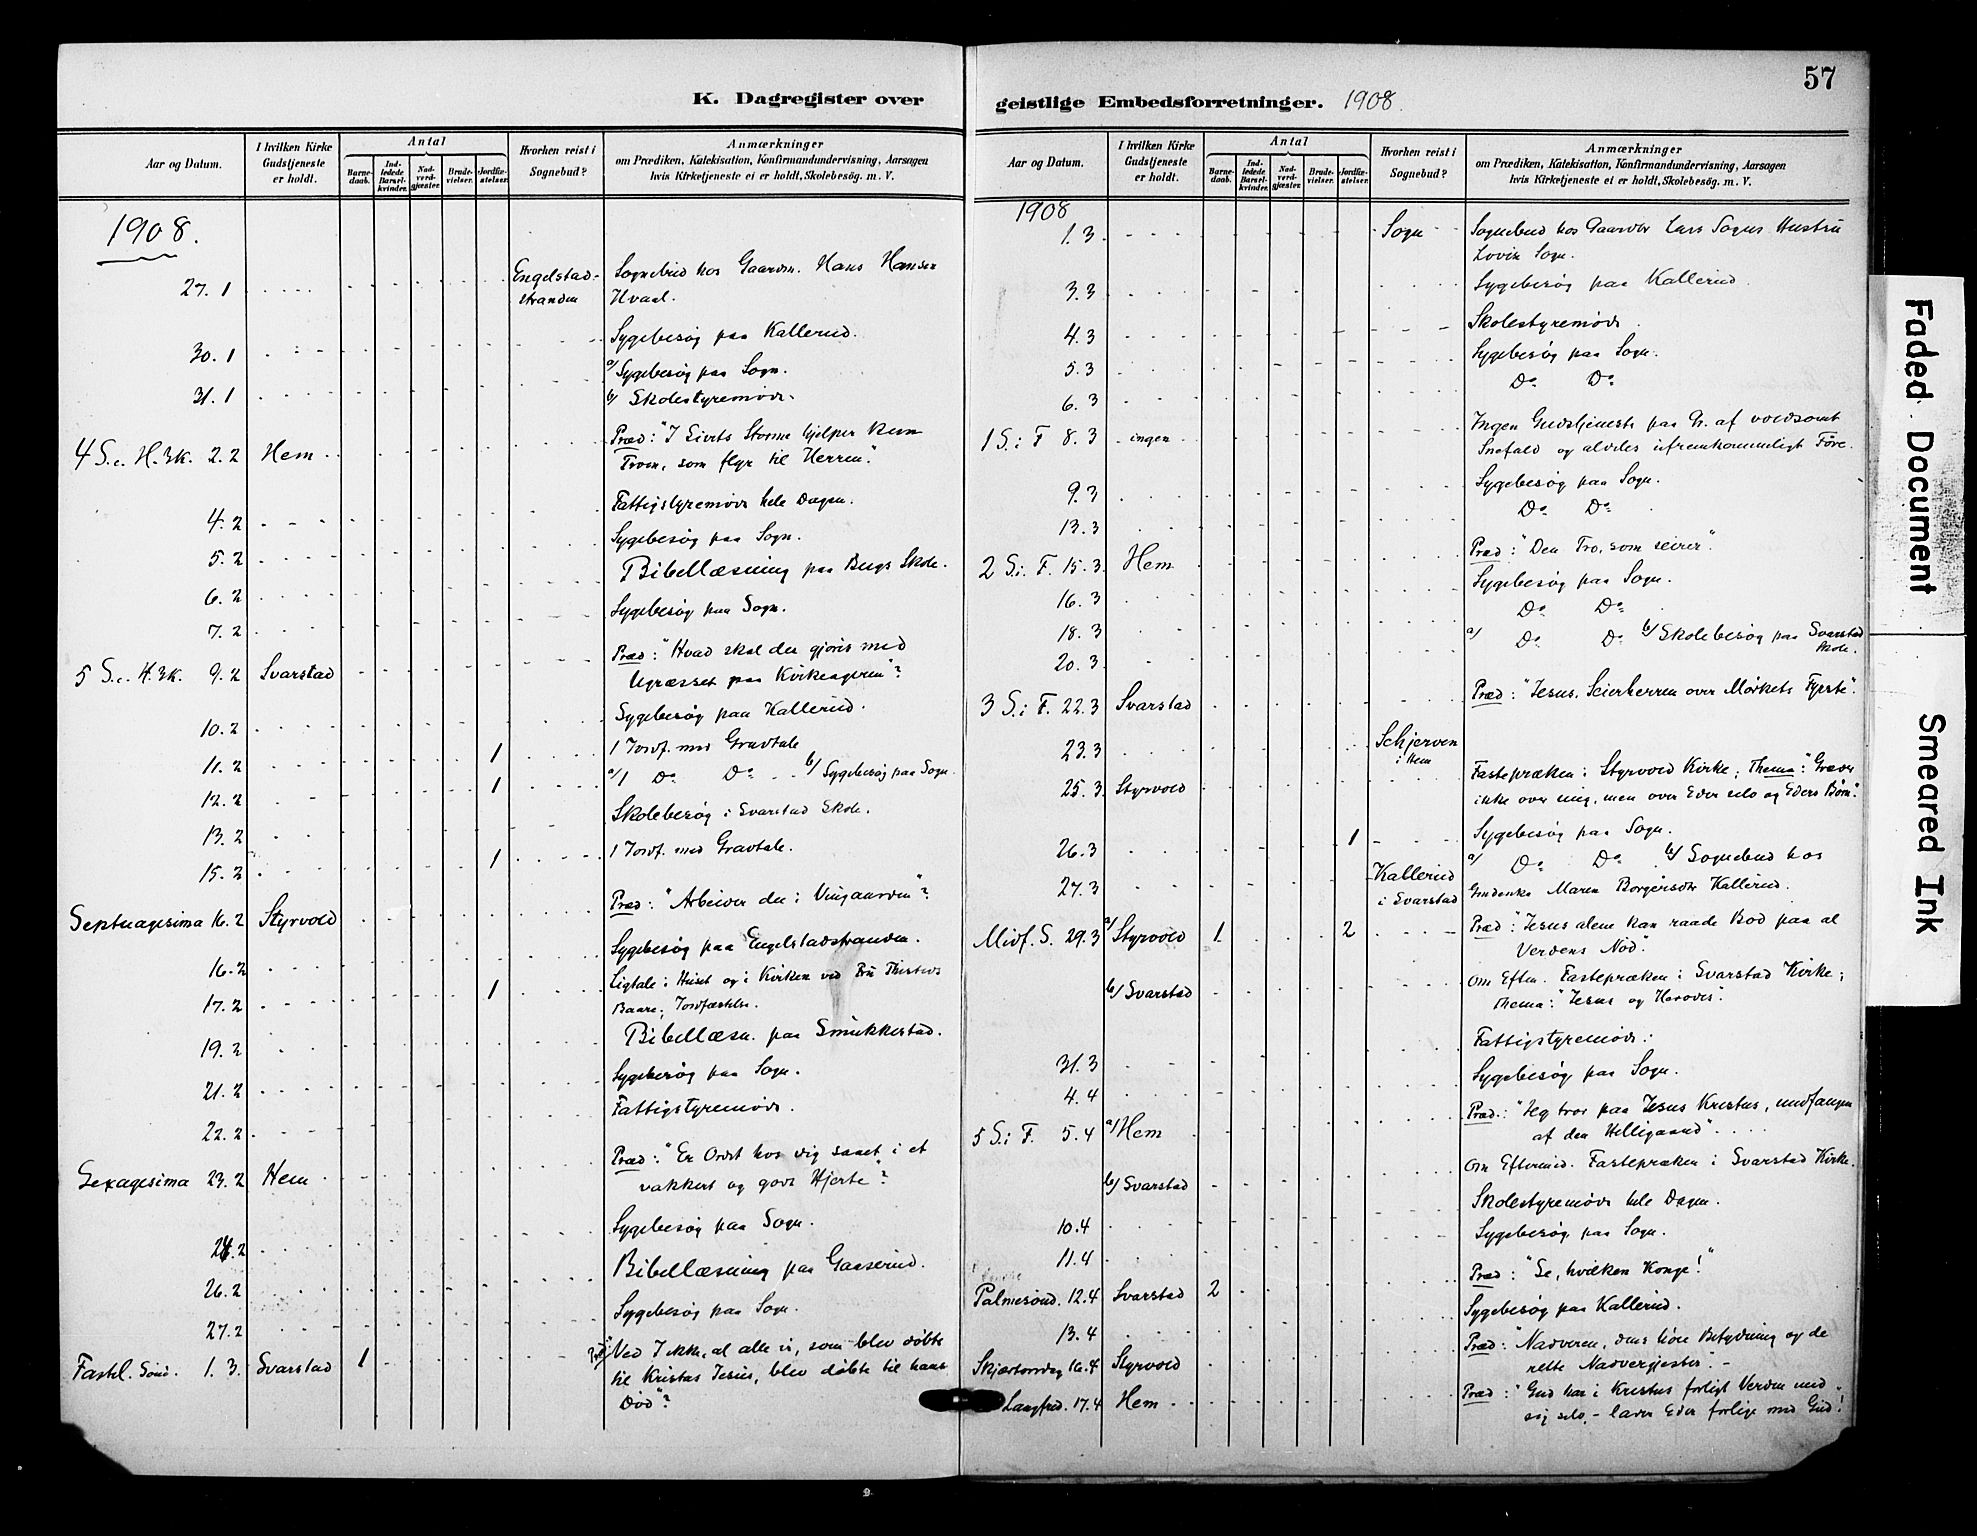 57
K. Dagregister over
geistlige Embedsforretninger. 1908.
Aar og Datum.
I hvilken Kirke Gudstjeneste er holdt.
Antal
Barnedaab.
Indledede Barselkvinder.
Nadverdgjæster.
Brudevielser.
Jordfæstelser.
Hvorhen reist i Sognebud?
Anmærkninger
om Prædiken, Katekisation, Konfirmandundervisning, Aarsagen
hvis Kirketjeneste ei er holdt, Skolebesög. m. V.
1908.
27. 1 Engelstad- Sognebud hos Gaardm. Hans Hansen
stranden Hvaal.
30. 1 Sygebesøg paa Kallerud.
31. 1 a/ Sygebesøg paa Sogn.
b/ Skolestyremøde.
4 S. e. H. 3K. 2. 2 Hem Præd: "I Livets Storme hjelper kun
Troen, som flyr til Herren".
4. 2 Fattigstyremøde hele Dagen.
5. 2 Sygebesøg paa Sogn.
6. 2 Bibellæsning paa Bergs Skole.
7. 2 Sygebesøg paa Sogn.
5 S. e. H. 3K. 9. 2 Svarstad Præd: "Hvad skal der gjøres med
Ugræsset paa Kirkeageren"?
10. 2 Sygebesøg paa Kallerud.
11. 2 1 1 Jordf. med Gravtale
12. 2 1 a/ 1 Do Do b/ Sygebesøg paa Sogn.
13. 2 Skolebesøg i Svarstad Skole.
15. 2 1 1 Jordf. med Gravtale.
Septuagesima 16. 2 Styrvold Præd: "Arbeider du i Vingaarden"?
16. 2 Sygebesøg paa Engelstadstranden.
17. 2 1 Ligtale i Huset og i Kirken ved Fru Thisteds
Baare; Jordfæstelse.
19. 2 Bibellæsn. paa Smukkestad.
21. 2 Sygebesøg paa Sogn.
22. 2 Fattigstyremøde.
Sexagesima 23. 2 Hem Præd: "Er Ordet hos dig saaet i et
vakkert og godt Hjerte"?
24. 2 Sygebesøg paa Sogn.
26. 2 Bibellæsning paa Gaaserud.
27. 2 Sygebesøg paa Sogn.
Fastel. Sönd. 1. 3. Svarstad 1 Præd: "Ved I ikke, at alle vi, som blev døbte
til Kristus Jesus, blev døbte til hans
Død"?
Aar og Datum.
I hvilken Kirke Gudstjeneste er holdt.
Antal
Barnedaab.
Indledede Barselkvinder.
Nadverdgjæster.
Brudevielser.
Jordfæstelser.
Hvorhen reist i Sognebud?
Anmærkninger
om Prædiken, Katekisation, Konfirmandundervisning, Aarsagen
hvis Kirketjeneste ei er holdt, Skolebesög. m. V.
1908
1. 3 Sogn Sognebud hos Gaardbr Lars Sogns Hustru
Lovise Sogn.
3. 3 Sygebesøg paa Kallerud.
4. 3 Skolestyremøde.
5. 3 Sygebesøg paa Sogn.
6. 3 Do Do
1 S. i F. 8. 3 ingen Ingen Gudstjeneste paa Gr. af voldsomt
Snefald og aldeles ufremkommeligt Føre.
9. 3 Sygebesøg paa Sogn.
13. 3 Do Do
2 S. i. F. 15. 3 Hem Præd: "Den Tro, som seirer".
16. 3 Sygebesøg paa Sogn.
18. 3 Do Do
20. 3 a/ Do Do b/ Skolebesøg paa Svarstad
Skole.
3 S. i F. 22. 3 Svarstad Præd: "Jesus, Seierherren over Mørkets Fyrste".
23. 3 Schjerven
i Hem
25. 3 Styrvold Fastepræken i Styrvold Kirke; Thema: "Græder
ikke over mig, men over Eder selv og Eders Børn".
26. 3 1 Sygebesøg paa Sogn.
27. 3 Kallerud a/ Do Do b/ Sognebud hos
i Svarstad Gmdenke Maren Borgersdtr Kallerud.
Midf. S. 29. 3 a/ Styrvold 1 2 Præd: "Jesus alene kan raade Bod paa al
Verdens Nød".
b/ Svarstad Om Efterm. Fastepræken i Svarstad Kirke;
Thema: "Jesus og Herodes".
31. 3 Fattigstyremøde.
4. 4 Sygebesøg paa Sogn.
5 S. i F. 5. 4 a/ Hem Præd.: "Jeg tror paa Jesus Kristus, undfangen
af den Helligaand".
b/ Svarstad Om Eftermid. Fastepræken i Svarstad Kirke.
10. 4 Skolestyremøde hele Dagen.
11. 4 Sygebesøg paa Sogn.
Palmesönd. 12. 4 Svarstad 2 Præd: "Se, hvilken Konge!"
13. 4 Sygebesøg paa Kallerud.
Skjærtorsdag 16. 4 Styrvold Præd: "Nadveren, dens höie Betydning og de
rette Nadvergjester".
Langfred. 17. 4 Hem Præd: "Gud har i Kristus forligt Verden med
sig selv, - lader Eder forlige med Gud!"
Faded Document
Smeared Ink